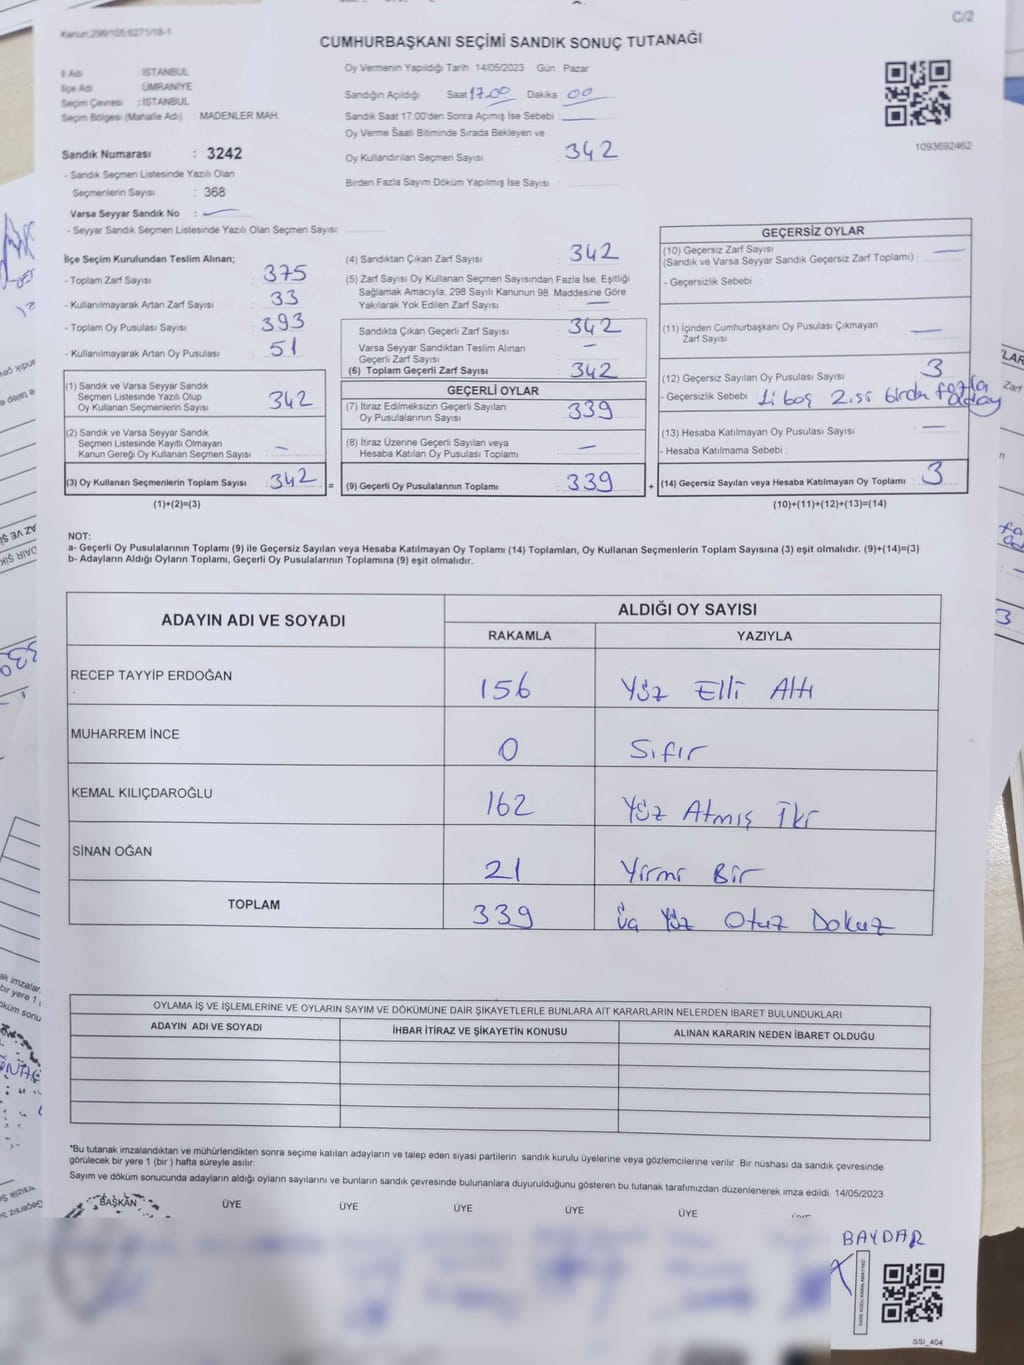 Kanun:298/105;6271/18-1
C/2
CUMHURBAŞKANI SEÇİMİ SANDIK SONUÇ TUTANAĞI
İl Adı : İSTANBUL
İlçe Adı : ÜMRANİYE
Seçim Çevresi : İSTANBUL
Seçim Bölgesi (Mahalle Adı) : MADENLER MAH.
Sandık Numarası : 3242
- Sandık Seçmen Listesinde Yazılı Olan
Seçmenlerin Sayısı : 368
Varsa Seyyar Sandık No : —
- Seyyar Sandık Seçmen Listesinde Yazılı Olan Seçmen Sayısı:
Oy Vermenin Yapıldığı Tarih : 14/05/2023 Gün : Pazar
Sandığın Açıldığı Saat 17.00 Dakika 00
Sandık Saat 17:00'den Sonra Açımış İse Sebebi : —
Oy Verme Saati Bitiminde Sırada Bekleyen ve
Oy Kullandırılan Seçmen Sayısı : 342
Birden Fazla Sayım Döküm Yapılmış İse Sayısı :
1093692462
İlçe Seçim Kurulundan Teslim Alınan;
- Toplam Zarf Sayısı : 375
- Kullanılmayarak Artan Zarf Sayısı : 33
- Toplam Oy Pusulası Sayısı : 393
- Kullanılmayarak Artan Oy Pusulası : 51
(1) Sandık ve Varsa Seyyar Sandık
Seçmen Listesinde Yazılı Olup
Oy Kullanan Seçmenlerin Sayısı : 342
(2) Sandık ve Varsa Seyyar Sandık
Seçmen Listesinde Kayıtlı Olmayan
Kanun Gereği Oy Kullanan Seçmen Sayısı : —
(3) Oy Kullanan Seçmenlerin Toplam Sayısı : 342
(1)+(2)=(3)
(4) Sandıktan Çıkan Zarf Sayısı : 342
(5) Zarf Sayısı Oy Kullanan Seçmen Sayısından Fazla İse, Eşitliği
Sağlamak Amacıyla; 298 Sayılı Kanunun 98. Maddesine Göre
Yakılarak Yok Edilen Zarf Sayısı : —
Sandıkta Çıkan Geçerli Zarf Sayısı : 342
Varsa Seyyar Sandıktan Teslim Alınan
Geçerli Zarf Sayısı : —
(6) Toplam Geçerli Zarf Sayısı : 342
GEÇERLİ OYLAR
(7) İtiraz Edilmeksizin Geçerli Sayılan
Oy Pusulalarının Sayısı : 339
(8) İtiraz Üzerine Geçerli Sayılan veya
Hesaba Katılan Oy Pusulası Toplamı : —
= (9) Geçerli Oy Pusulalarının Toplamı : 339
GEÇERSİZ OYLAR
(10) Geçersiz Zarf Sayısı
(Sandık ve Varsa Seyyar Sandık Geçersiz Zarf Toplamı) : —
- Geçersizlik Sebebi :
(11) İçinden Cumhurbaşkanı Oy Pusulası Çıkmayan
Zarf Sayısı : —
(12) Geçersiz Sayılan Oy Pusulası Sayısı : 3
- Geçersizlik Sebebi : birden fazla aday
(13) Hesaba Katılmayan Oy Pusulası Sayısı : —
- Hesaba Katılmama Sebebi :
+ (14) Geçersiz Sayılan veya Hesaba Katılmayan Oy Toplamı : 3
(10)+(11)+(12)+(13)=(14)
NOT:
a- Geçerli Oy Pusulalarının Toplamı (9) ile Geçersiz Sayılan veya Hesaba Katılmayan Oy Toplamı (14) Toplamları, Oy Kullanan Seçmenlerin Toplam Sayısına (3) eşit olmalıdır. (9)+(14)=(3)
b- Adayların Aldığı Oyların Toplamı, Geçerli Oy Pusulalarının Toplamına (9) eşit olmalıdır.
ADAYIN ADI VE SOYADI
ALDIĞI OY SAYISI
RAKAMLA YAZIYLA
RECEP TAYYİP ERDOĞAN 156 Yüz Elli Altı
MUHARREM İNCE 0 Sıfır
KEMAL KILIÇDAROĞLU 162 Yüz Atmış İki
SİNAN OĞAN 21 Yirmi Bir
TOPLAM 339 Üç Yüz Otuz Dokuz
OYLAMA İŞ VE İŞLEMLERİNE VE OYLARIN SAYIM VE DÖKÜMÜNE DAİR ŞİKAYETLERLE BUNLARA AİT KARARLARIN NELERDEN İBARET BULUNDUKLARI
ADAYIN ADI VE SOYADI İHBAR İTİRAZ VE ŞİKAYETİN KONUSU ALINAN KARARIN NEDEN İBARET OLDUĞU
*Bu tutanak imzalandıktan ve mühürlendikten sonra seçime katılan adayların ve talep eden siyasi partilerin sandık kurulu üyelerine veya gözlemcilerine verilir. Bir nüshası da sandık çevresinde
görülecek bir yere 1 (bir ) hafta süreyle asılır.
Sayım ve döküm sonucunda adayların aldığı oyların sayılarını ve bunların sandık çevresinde bulunanlara duyurulduğunu gösteren bu tutanak tarafımızdan düzenlenerek imza edildi. 14/05/2023
BAŞKAN ÜYE ÜYE ÜYE ÜYE ÜYE
BAYDAR
SSI_404